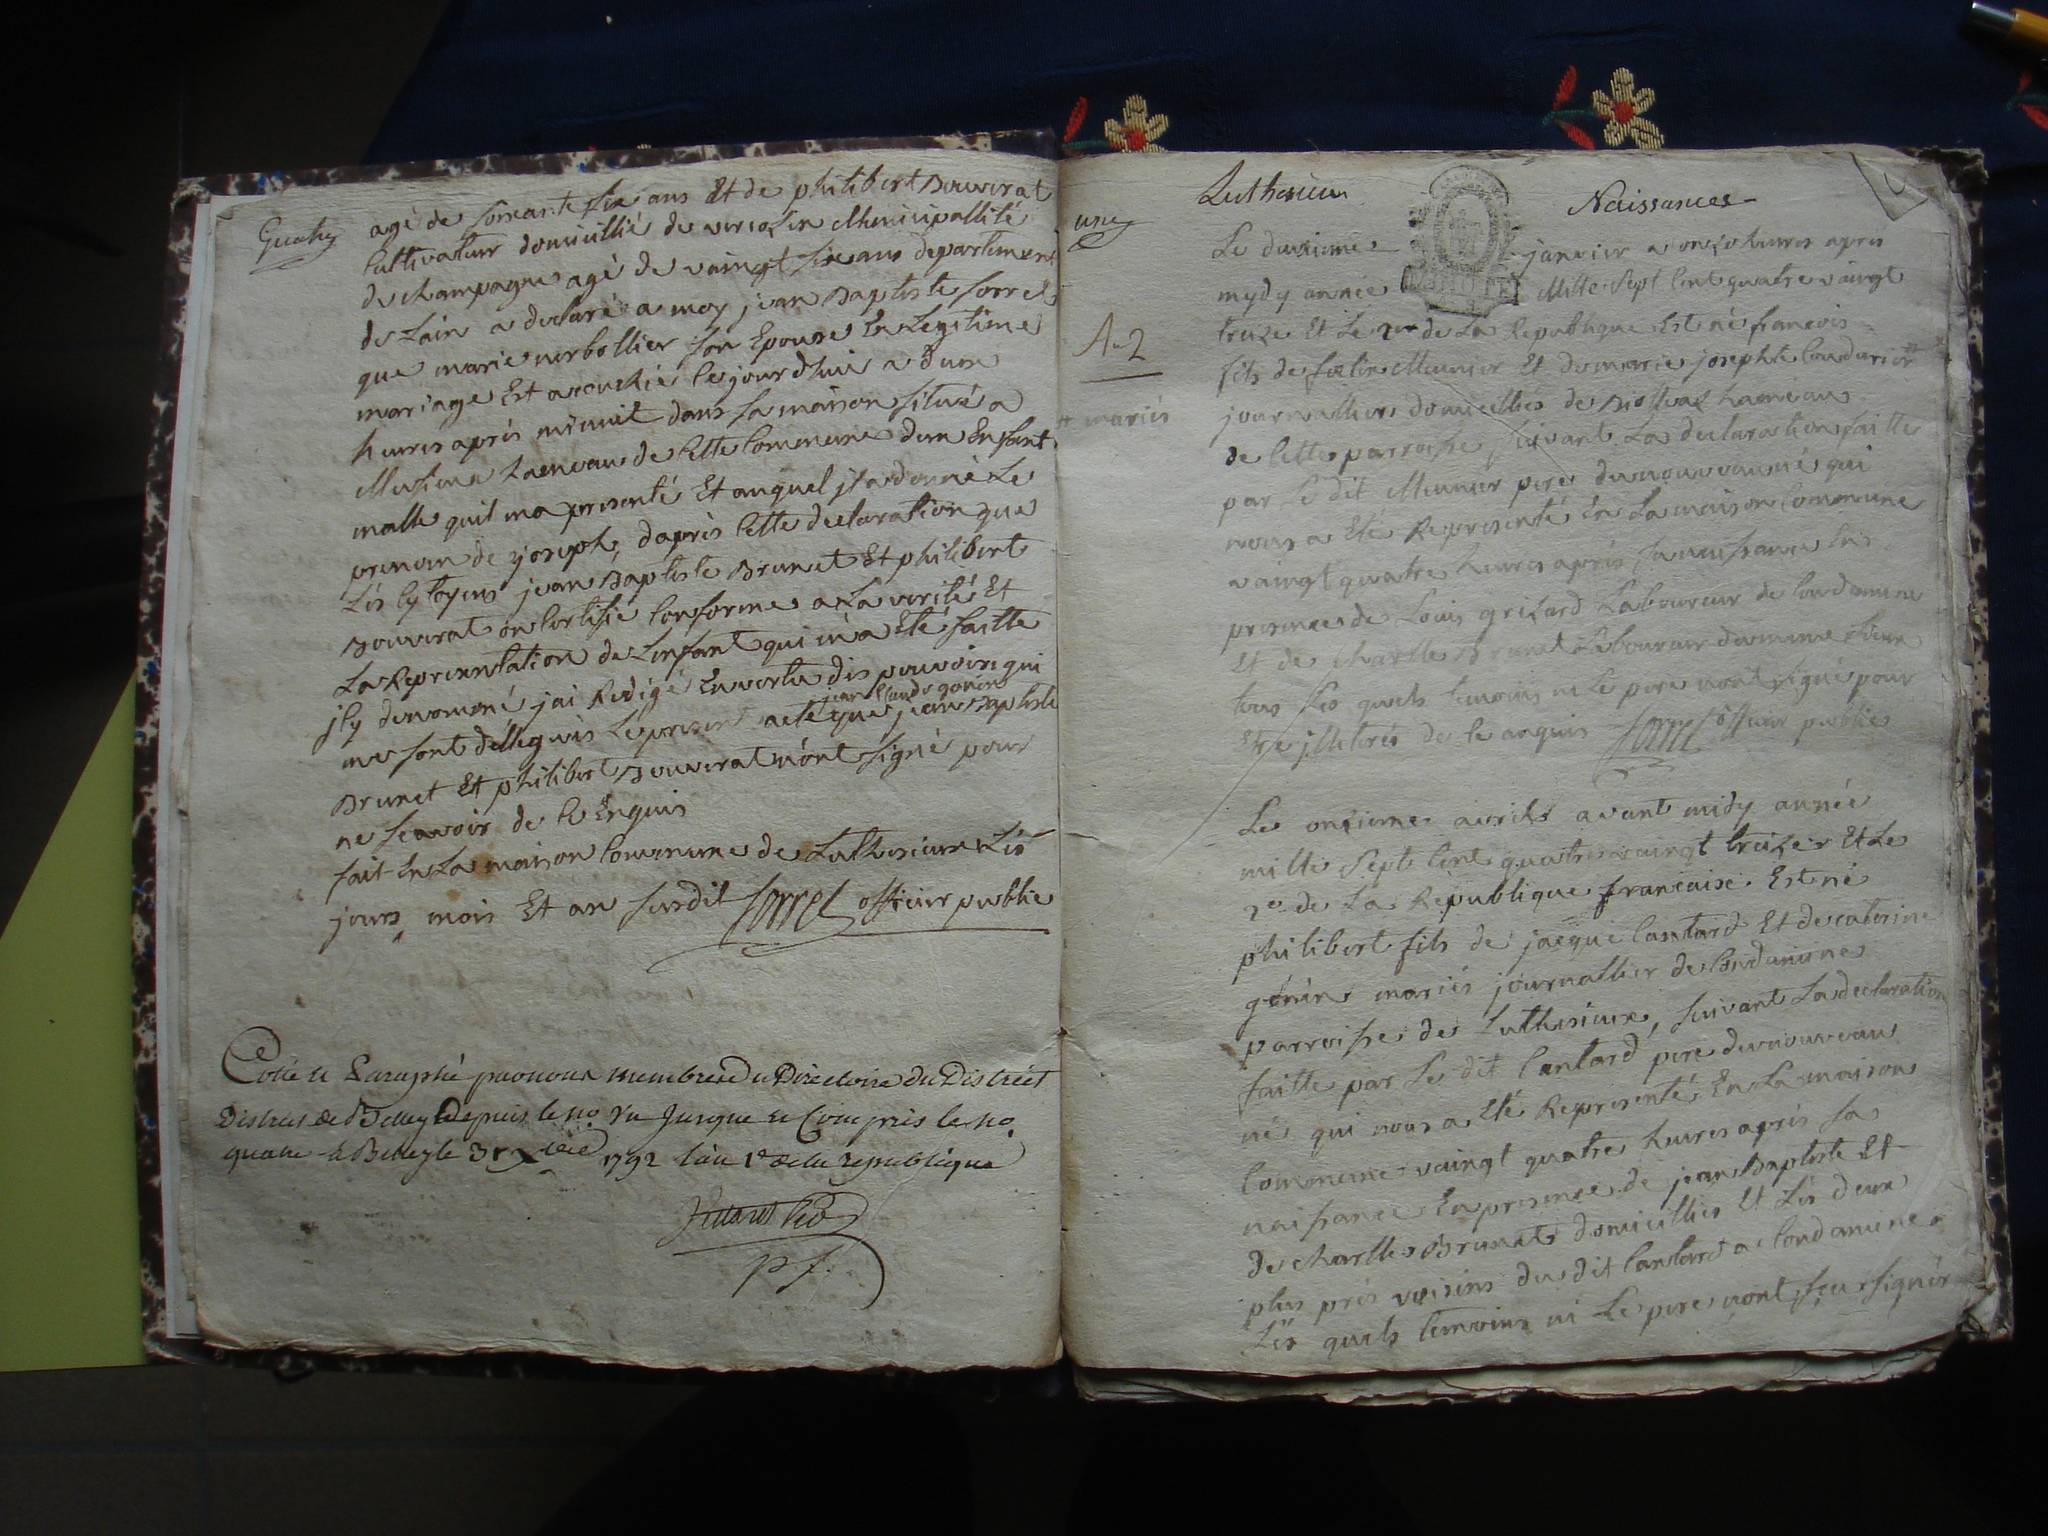 quatre
agé de soixante six ans Et de philibert Bouvirat
Cultivateur domicillié de virisolin Municipallité
de champagne agé de vaingt six ans departement
de Lain a declaré a moy jean Baptiste sorrel
que marie verbollier son Epouse En Legitime
mariage Est acouchée le jourdhuit a dune
heures après minuit dans sa maison située a
Musina hameau de Cette Commune dun Enfant
malle quil ma presenté Et auquel jl a donné Le
prenom de joseph, daprès Cette declaration que
Les Cytoyens jean Baptiste Brunet Et philibert
Bouvirat on Certifié Conforme a La verité Et
La Representation de Lenfant qui m'a Eté faitte
jly denommé jai Redigé En vertu des pouvoirs qui
me sont déllegués Le present acte que jean Claude gonin jean Baptiste
Brunet Et philibert Bouvirat n'ont signé pour
ne scavoir de Ce Enquis
fait En La maison Commune de Luthesieux Les
jours, mois Et an susdit sorrel officier publie
Cotté et Paraphé par nous membre du Directoire du District
District de Belley Depuis le no. un Jusque et Compris le no.
quatre à Belley le 31 Xbre 1792 l'an 1er de la république
p f.
Luthesieux
Naissances
une
Le deuxieme janvier a onze heures après
mydy année Mille Sept Cent quatre vaingt
treize Et Le 2me de La Republique Est né francois
An 2
fils de felin Meunier Et de marie josephte Condurier
# mariés
journalliers domicilliés de hameau
de Cette parroisse suivant La declaration faitte
par Le dit Meunier pere du nouveau né qui
nous a Eté Representé En La maison Commune
vaingt quatre heures après sa naissance En
presence de Louis grizard Laboureur de Condamine
Et de Charlle Brunet Laboureur du meme Lieux
tous Les quels temoins ni Le pere n'ont signé pour
Etre jlletrés de Ce anquis sorrel officier publie
Le onzieme avrils avant midy année
mille Sept Cent quatre vaingt treize Et Le
2e de La Republique francaise Est né
philibert fils de jacque Cantard Et de caterine
génin mariés journallier de Condamine
parroisse de Luthesieux, suivant La declaration
faitte par Le dit Cantard pere du nouveau
né qui nous a Eté Representé En La maison
Commune vaingt quatre heures après sa
naissance En presence de jean Baptiste Et
de Charlles Brunet domicilliés Et Les deux
plus près voisins du dit Cantard a Condamine
Les quels temoins ni Le pere n'ont sçu signér